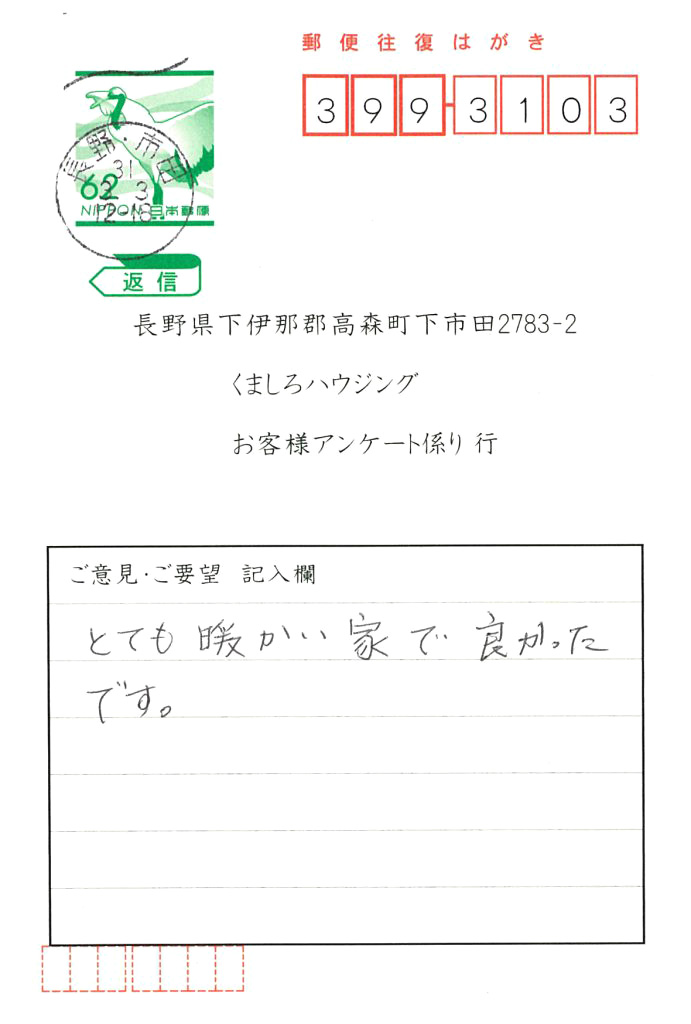 郵便往復はがき
399-3103
長野・市田
31
3 3
12-18
62
NIPPON 日本郵便
返信
長野県下伊那郡高森町下市田2783-2
くましろハウジング
お客様アンケート係り 行
ご意見・ご要望 記入欄
とても暖かい家で良かった
です。